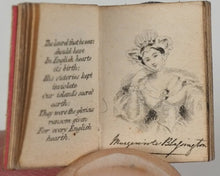 The laurel that he sent
should have
In English hearts
its birth;
His victories kept
inviolate
Our island's sacred
earth:
They were the glorious
ransom given
For every English
hearth.
Marguerite Blessington